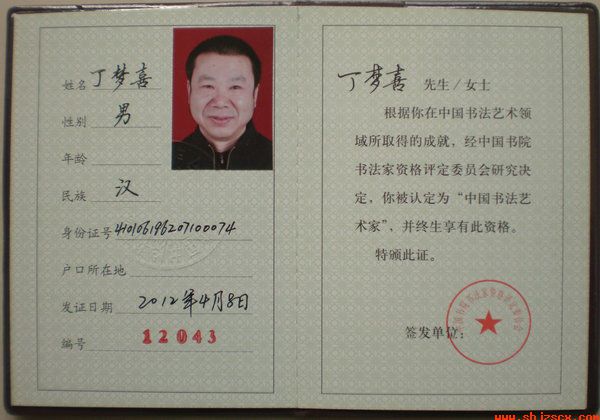 姓名 丁梦喜
性别 男
年龄
民族 汉
身份证号 410106196207100074
户口所在地
发证日期 2012年4月8日
编号 12043
丁梦喜 先生/女士
根据你在中国书法艺术领
域所取得的成就，经中国书院
书法家资格评定委员会研究决
定，你被认定为“中国书法艺
术家”，并终生享有此资格。
特颁此证。
签发单位：
www.shjzscx.com